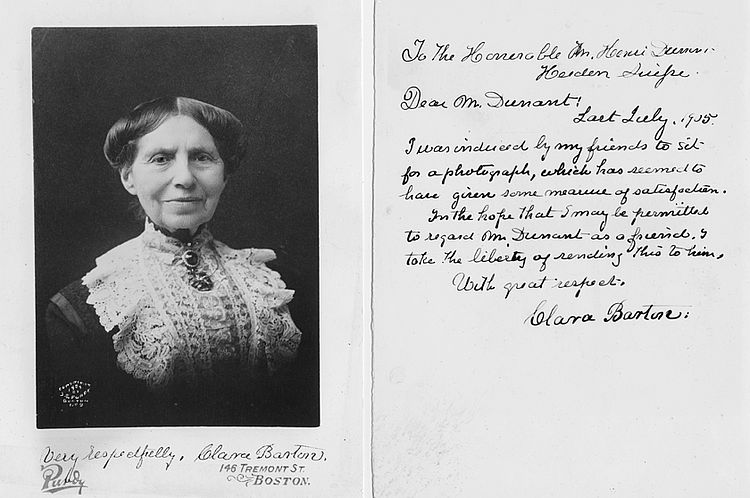 Very respectfully, Clara Barton.
Purdy
146 TREMONT ST.
BOSTON.
To the Honorable Mr. Henri Dunant
Heiden Suisse.
Dear Mr. Dunant!
Last July, 1905.
I was induced by my friends to sit
for a photograph, which has seemed to
have given some measure of satisfaction.
In the hope that I may be permitted
to regard Mr. Dunant as a friend. I
take the liberty of sending this to him.
With great respect.
Clara Barton.